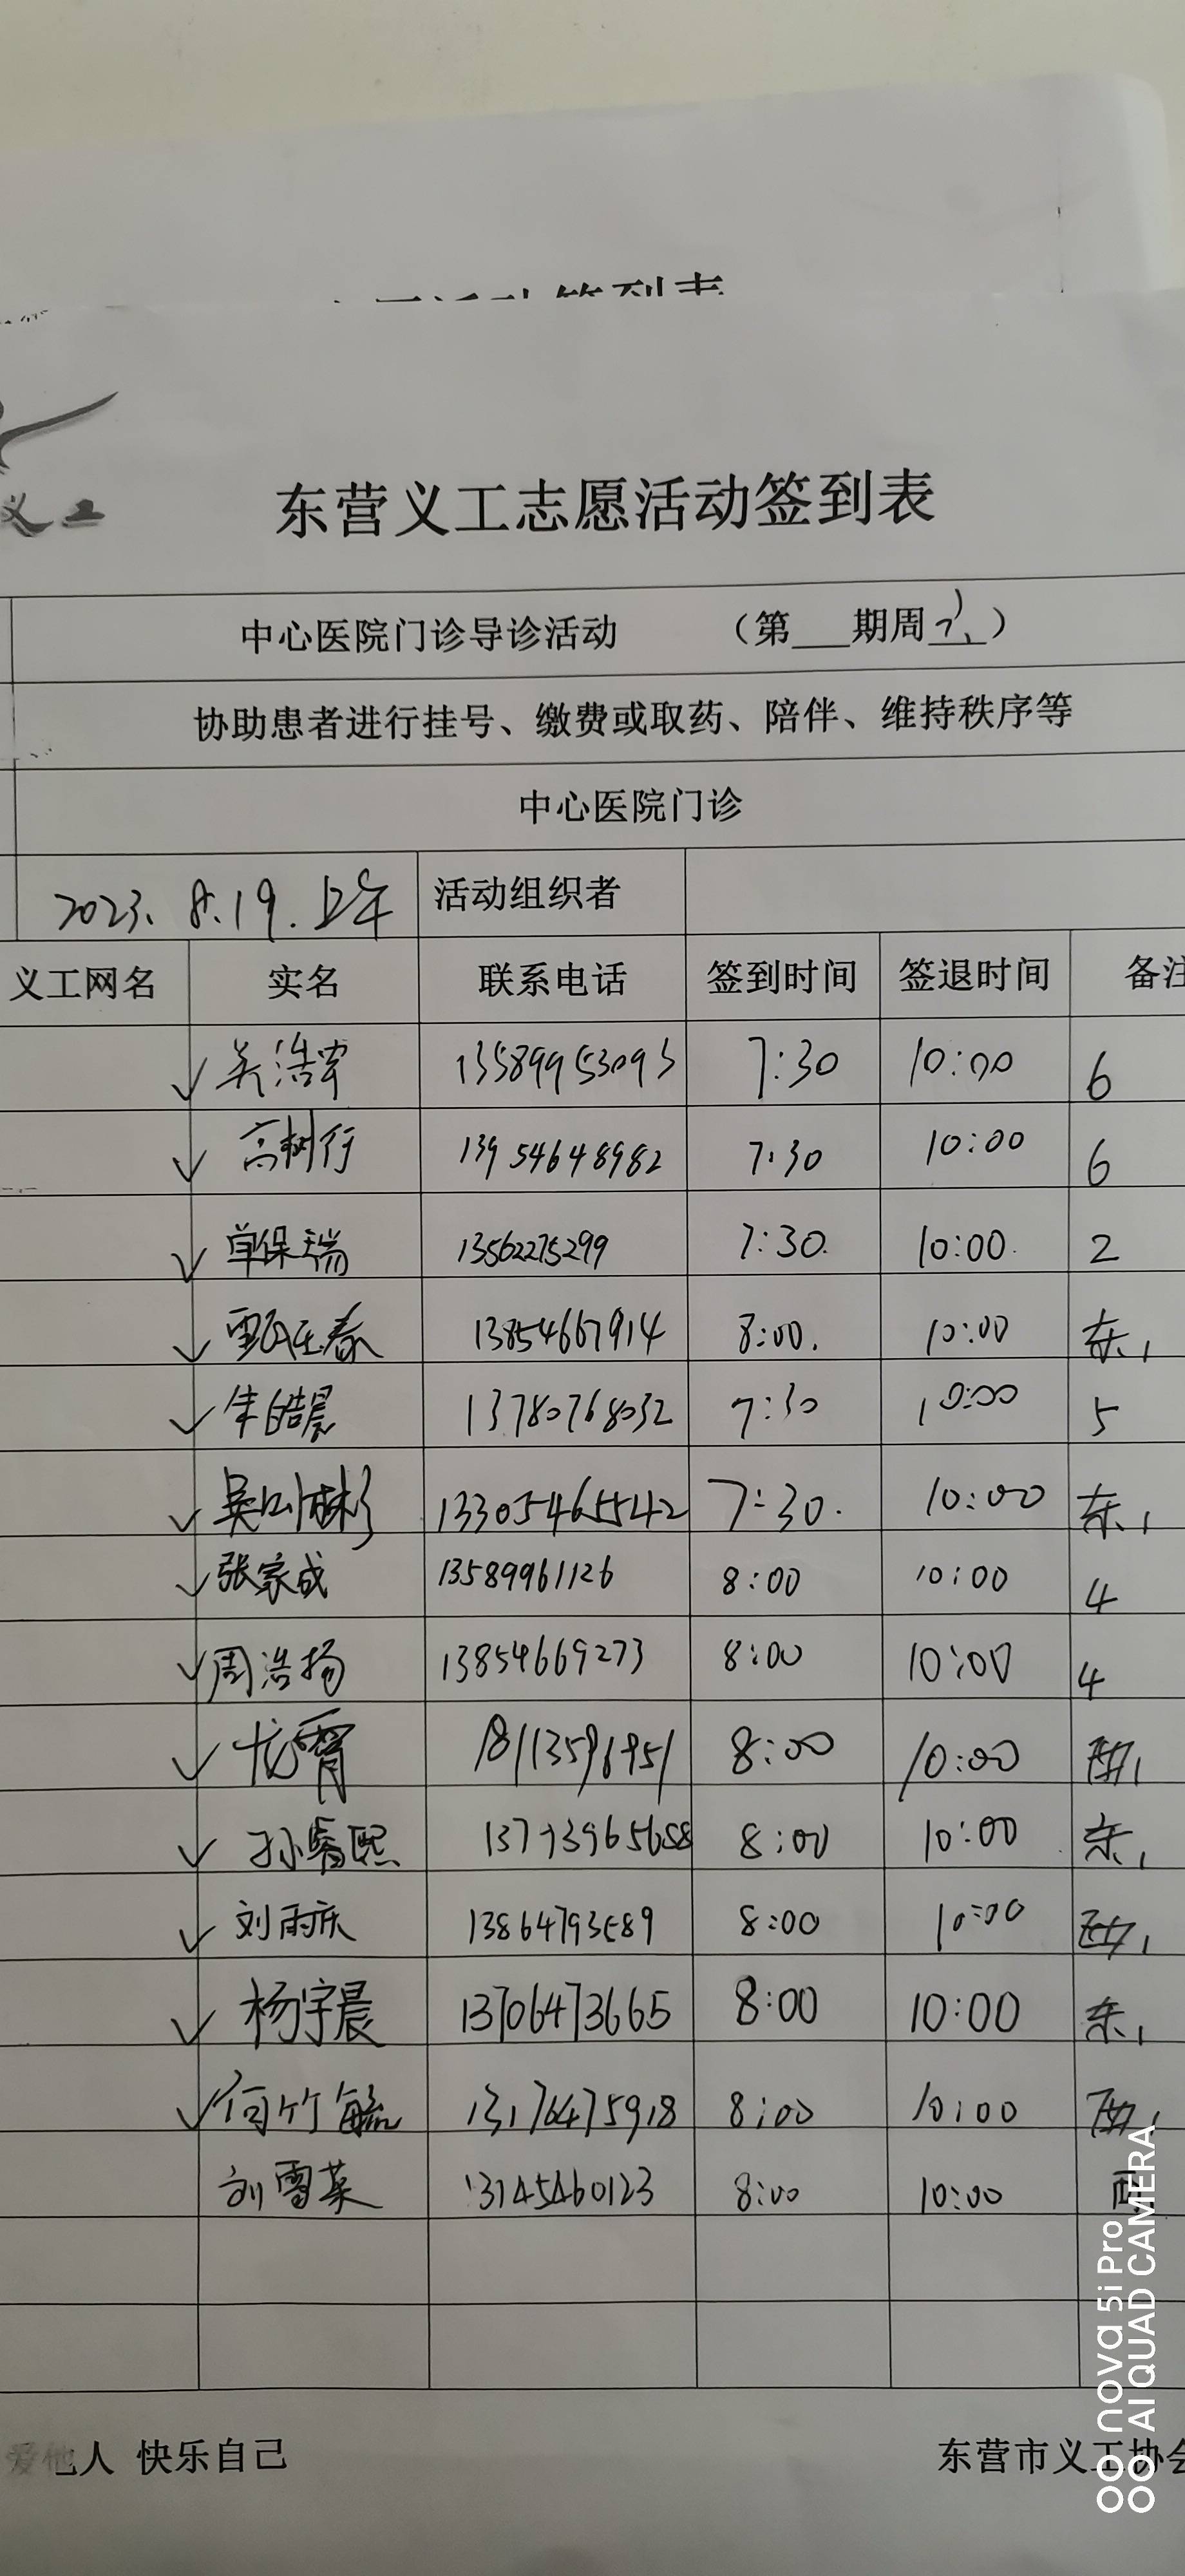 义工
东营义工志愿活动签到表
中心医院门诊导诊活动 （第___期周___）
协助患者进行挂号、缴费或取药、陪伴、维持秩序等
中心医院门诊
2023.8.19.上午 活动组织者
义工网名 实名 联系电话 签到时间 签退时间 备注
✓ 吴浩宇 13589953093 7:30 10:00 6
✓ 高树行 13954648982 7:30 10:00 6
✓ 单保瑞 13562275299 7:30. 10:00. 2
✓ 13854667914 8:00. 10:00 东1
✓ 朱皓晨 13780768032 7:30 10:00 5
✓ 13305465542 7:30. 10:00 东1
✓ 张家成 13589961126 8:00 10:00 4
✓ 周浩扬 13854669273 8:00 10:00 4
✓ 8:00 10:00 西1
✓ 孙睿熙 8:00 10:00 东1
✓ 刘雨庆 8:00 10:00 西1
✓ 杨宇晨 13706473665 8:00 10:00 东1
✓ 何竹毓 13176475918 8:00 10:00 西1
8:00 10:00 西
爱他人 快乐自己 东营市义工协会
nova 5i Pro
AI QUAD CAMERA